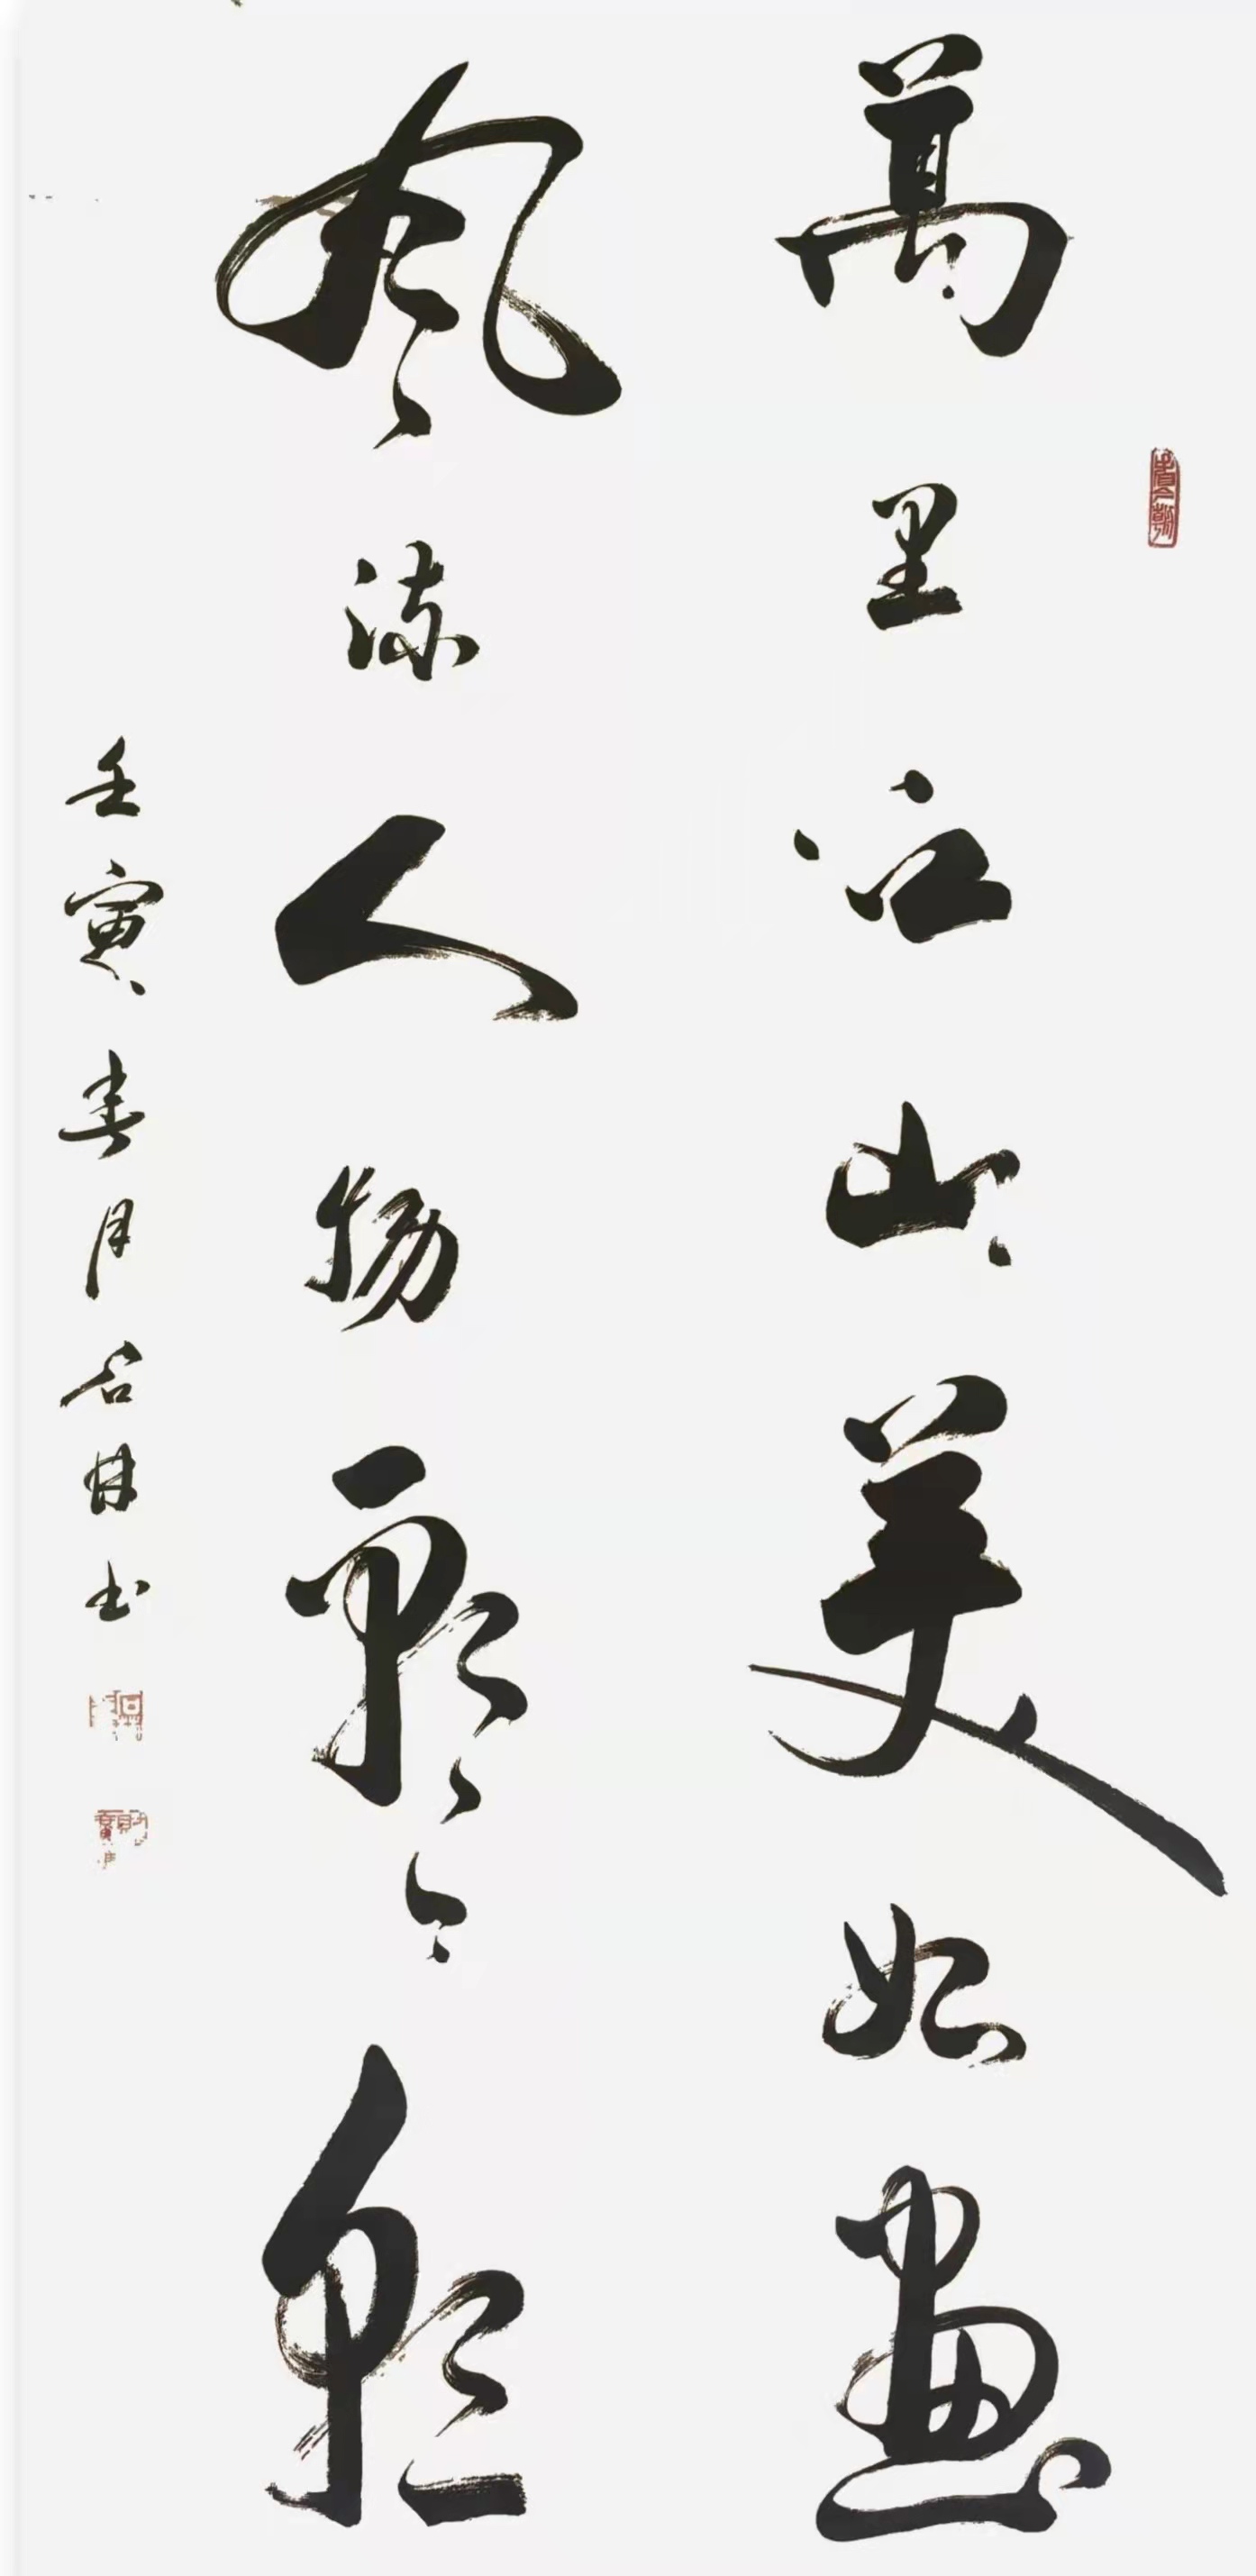 萬里江山美如畫
風流人物今朝
壬寅春月石书